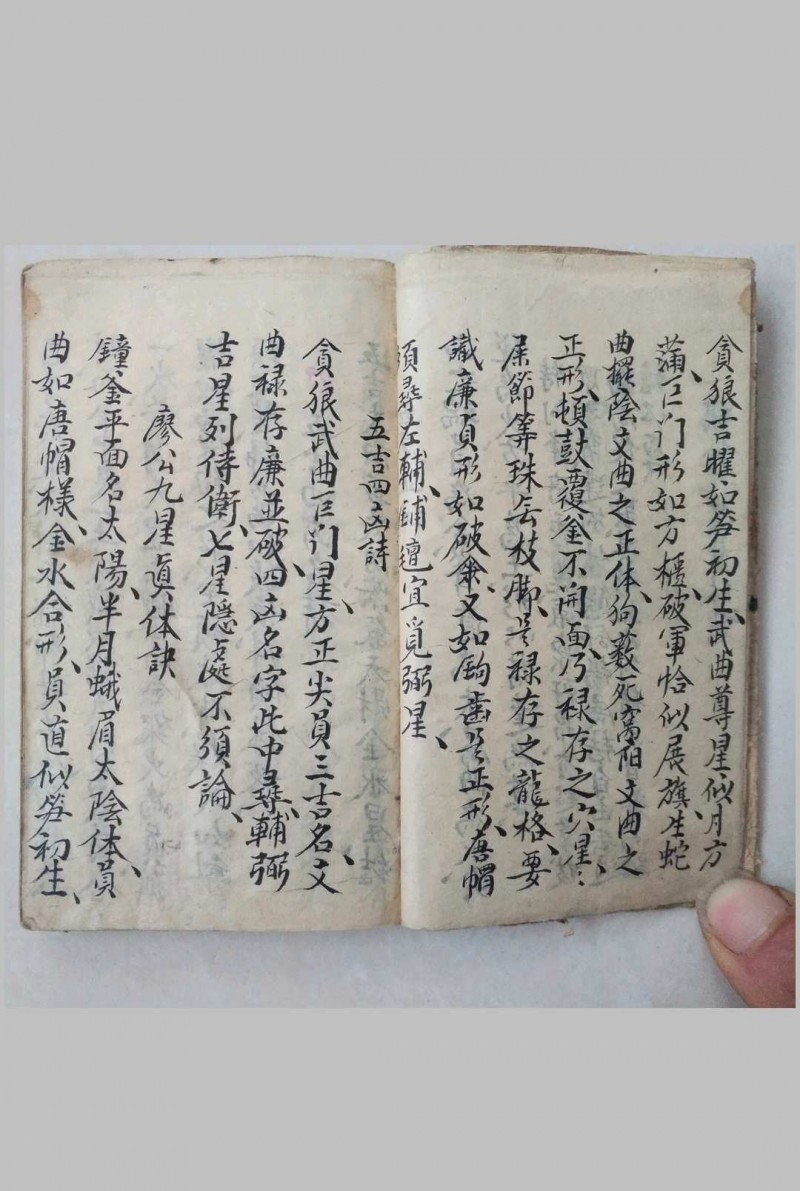 貪狼吉曜如笋初生、武曲尊星似月方
蒲、巨门形如方櫃、破軍恰似展旗、生蛇
曲擺陰文曲之正体、狗薮死窩阳文曲之
正形、頓鼓覆釜不開面、乃禄存之穴星、
屎節等珠兵枝脚、是禄存之龍格、要
識廉貞形如破傘、又如馿齒是正形、唐帽
須尋左輔、鋪氊宜覓弼星、
五吉四凶詩
貪狼武曲巨门星、方正尖員三吉名、文
曲禄存廉並破、四凶名字此中尋、輔弼
吉星列侍衛、七星隱庭不須論、
廖公九星真体訣
鐘釜平面名太陽、半月蛾眉太陰体、員
曲如唐帽樣、金水合形、員直似笋初生、